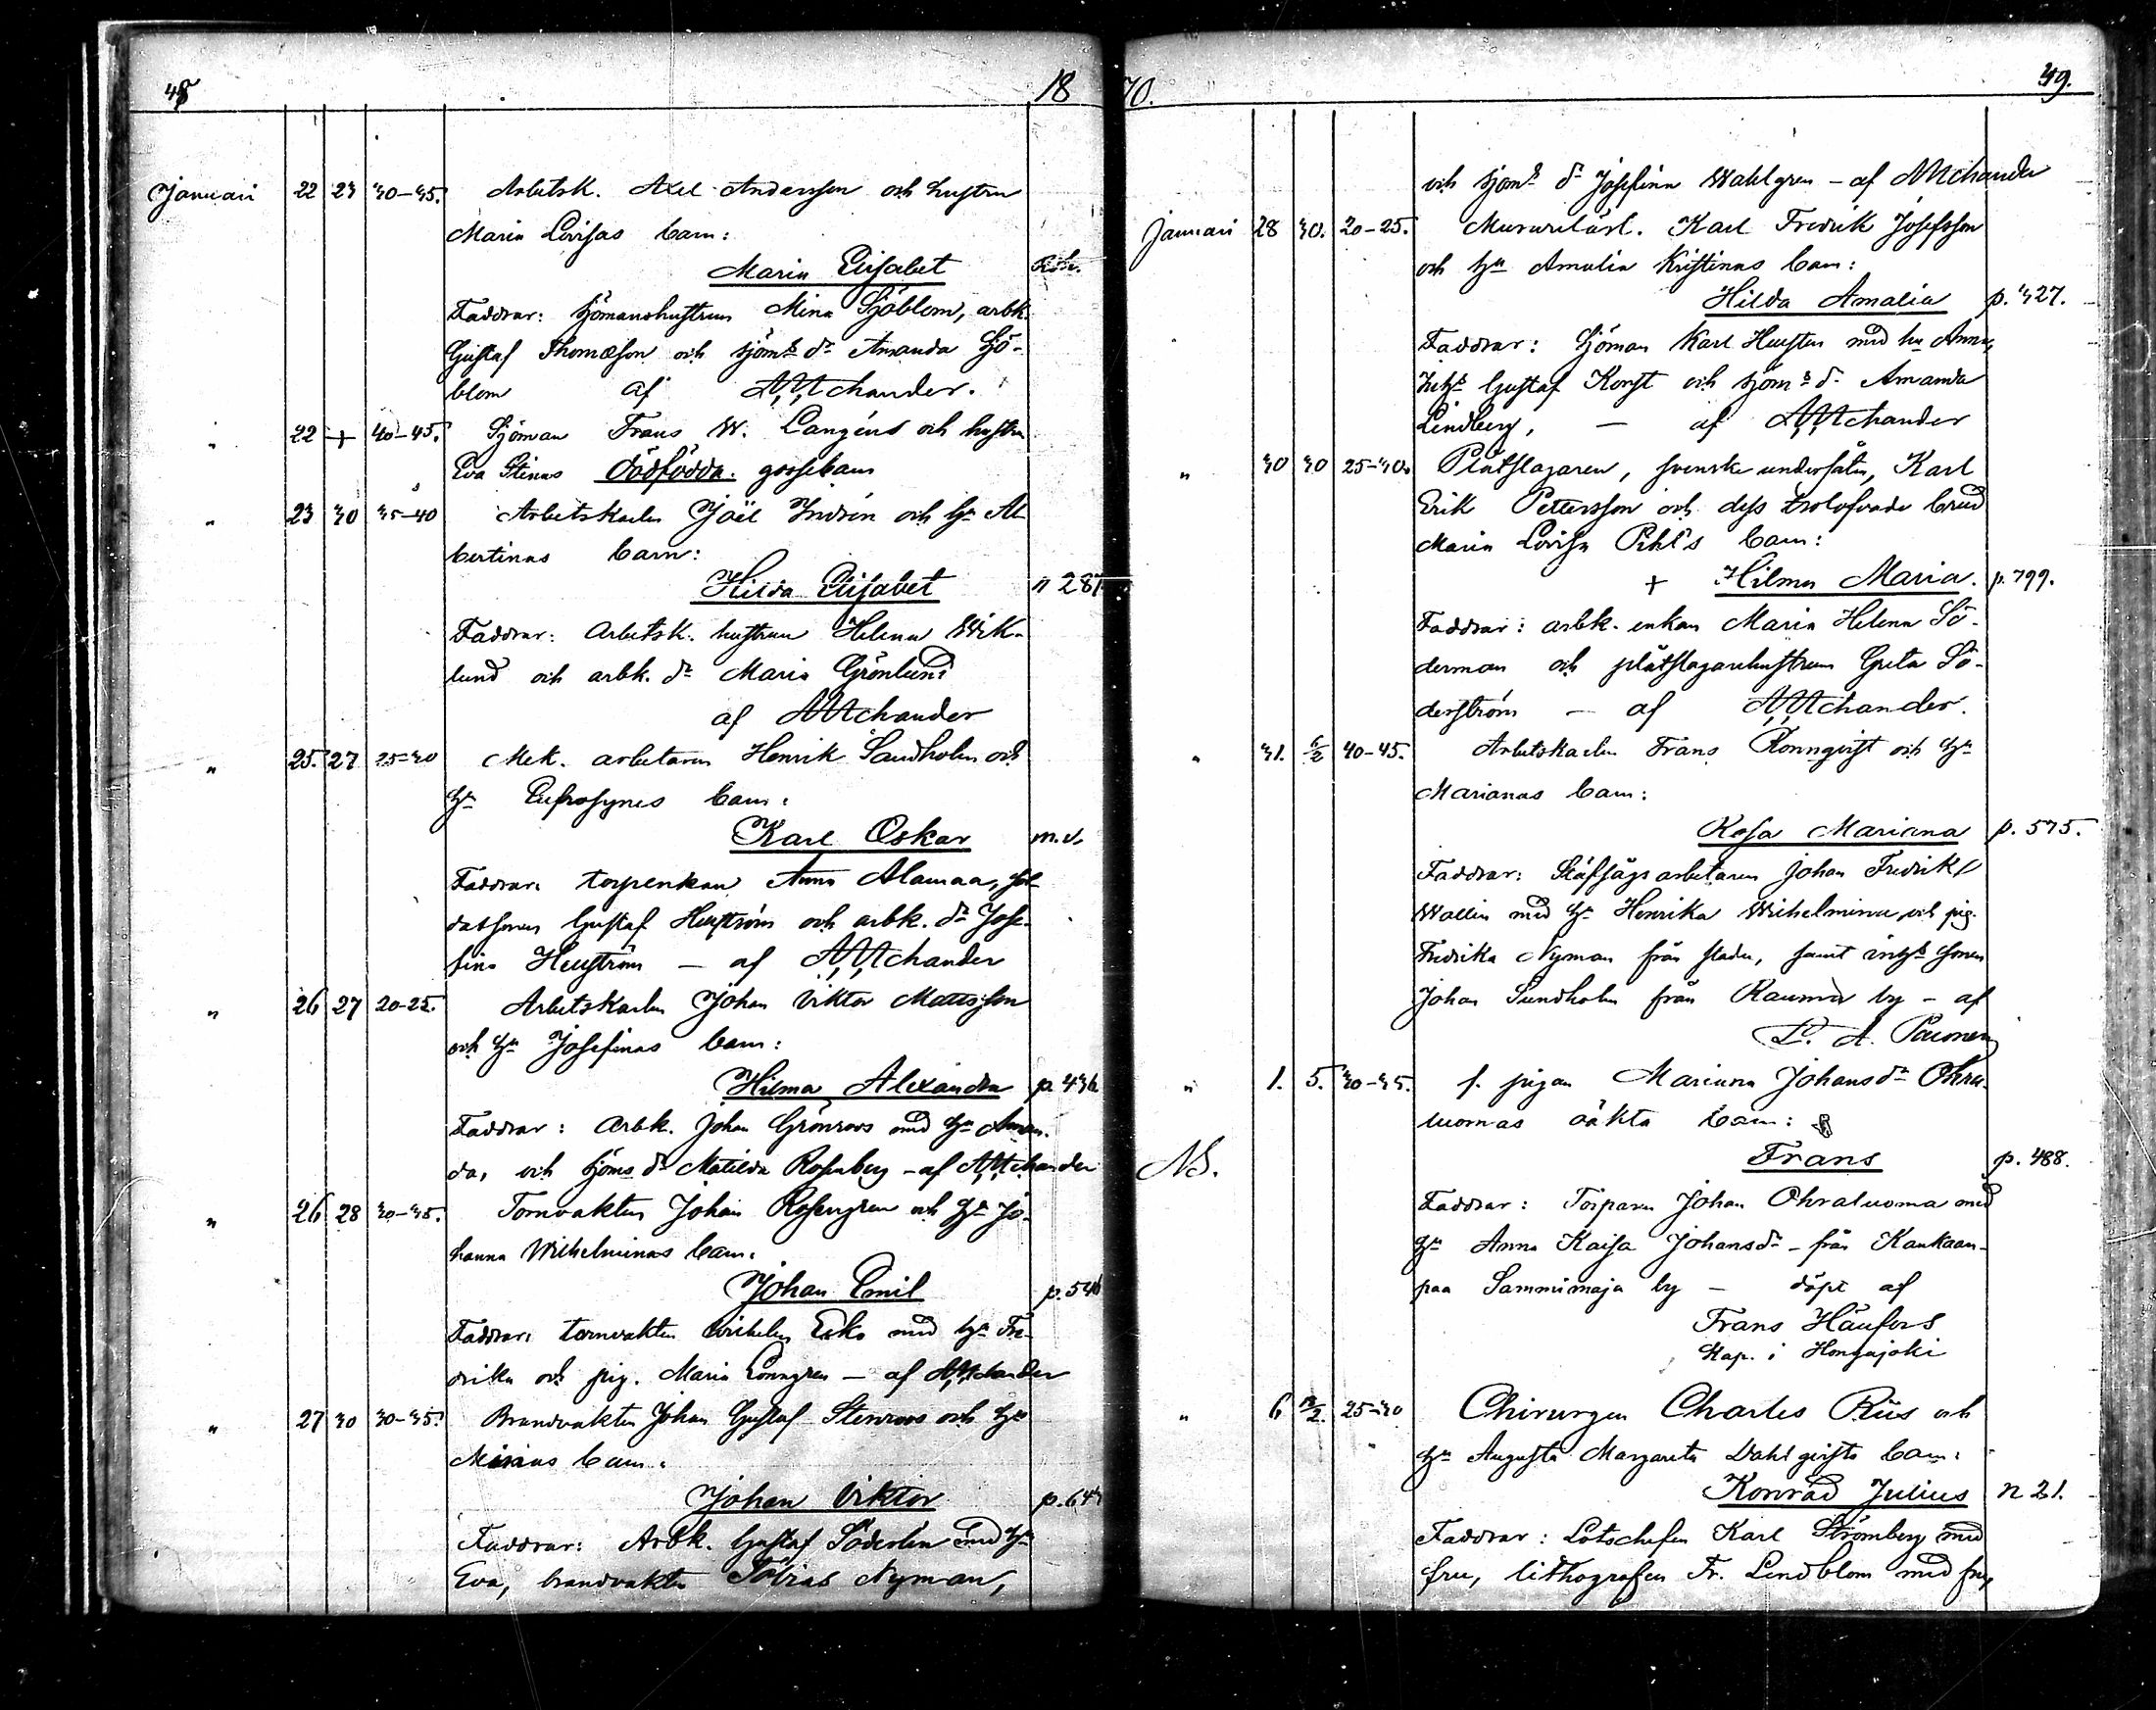 48 18
Januari 22 23 30-35. Arbetsk. Axel Andersson och hustru
Maria Lovisas barn:
Maria Elisabet
Faddrar: sjömanshustrun Mina Sjöblom, arbk.
Gustaf Thomasson och sjöms dr Amanda Sjö-
blom af
" 22 + 40-45. Sjöman Frans W. Langéns och hustru
Eva Stinas dödfödda gossebarn
" 23 30 35-40 Arbetskarlen Joël Indrén och hn Al-
bertinas barn:
Hilda Elisabet n 287
Faddrar: Arbetsk. hustrun Helena Wik-
lund och arbk. dr Maria Grönlund
af
" 25. 27 25-30 Mek. arbetaren Henrik Sandholm och
hn Eufrosynes barn:
Karl Oskar m.v.
Faddrar: torpenkan Anna Alamaa, sol-
datsonen Gustaf Hellström och arbk. dr Jose-
fina Hellström — af
" 26 27 20-25. Arbetskarlen Johan Viktor Mattsson
och hn Josefinas barn:
Hilma Alexandra p. 436
Faddrar: Arbk. Johan Grönroos med hn Aman-
da, och sjöms dr Matilda Rosenberg - af
" 26 28 30-35. Tornvakten Johan Rosengren och hn Jo-
hanna Wilhelminas barn:
Johan Emil p. 546
Faddrar: tornvakten Wilhelm Eska med hn Fre-
drika och pig. Maria Lönngren — af
" 27 30 30-35. Brandvakten Johan Gustaf Stenroos och hn
barn:
Johan Viktor p. 643
Faddrar: Arbk. Gustaf Söderlén med hn
Eva, brandvakten Tobias Nyman,
70. 49.
och sjoms dr Josefina Wahlgren - af
Januari 28 30. 20-25. Murarelärl. Karl Fredrik Josefsson
och hn Amalia Kristinas barn:
Hilda Amalia p. 327.
Faddrar: Sjöman Karl Hellsten med hn Anna,
Gustaf Korst och sjöms dr Amanda
Lindberg, — af
" 30 30 25-30. Plåtslagaren, svenske undersåten, Karl
Erik Pettersson och dess trolofvade brud
Maria Lovisa Pihl's barn:
+ Hilma Maria. p. 799.
Faddrar: arbk. enkan Maria Helena Sö-
derman och plåtslagarehustrun Greta Sö-
derström — af
" 31. 6/2 40-45. Arbetskarlen Frans Rönnqvist och hn
Marianas barn:
Rosa Mariana p. 575.
Faddrar: Stäfsågsarbetaren Johan Fredrik
Wallin med hn Henrika Wilhelmina, och pig.
Fredrika Nyman från staden, samt inhs sonen
Johan Sundholm från Rauma by - af
" 1. 5. 30-35. f. pigan Mariana Johansdr Ohra-
luomas oäkta barn:
NB. Frans p. 488.
Faddrar: Torparen Johan Ohraluoma med
hn Anna Kaisa Johansdr - från Kankaan-
pää Sammimaja by — döpt af
Frans Hänfors
Kap. i Hongajoki
" 6 25-30 Chirurgen Charles Riis och
hn Augusta Margareta Dahlqvists barn:
Konrad Julius n 21.
Faddrar: Lotschefen Karl Strömberg med
fru, lithografen Fr. Lindblom med fru,